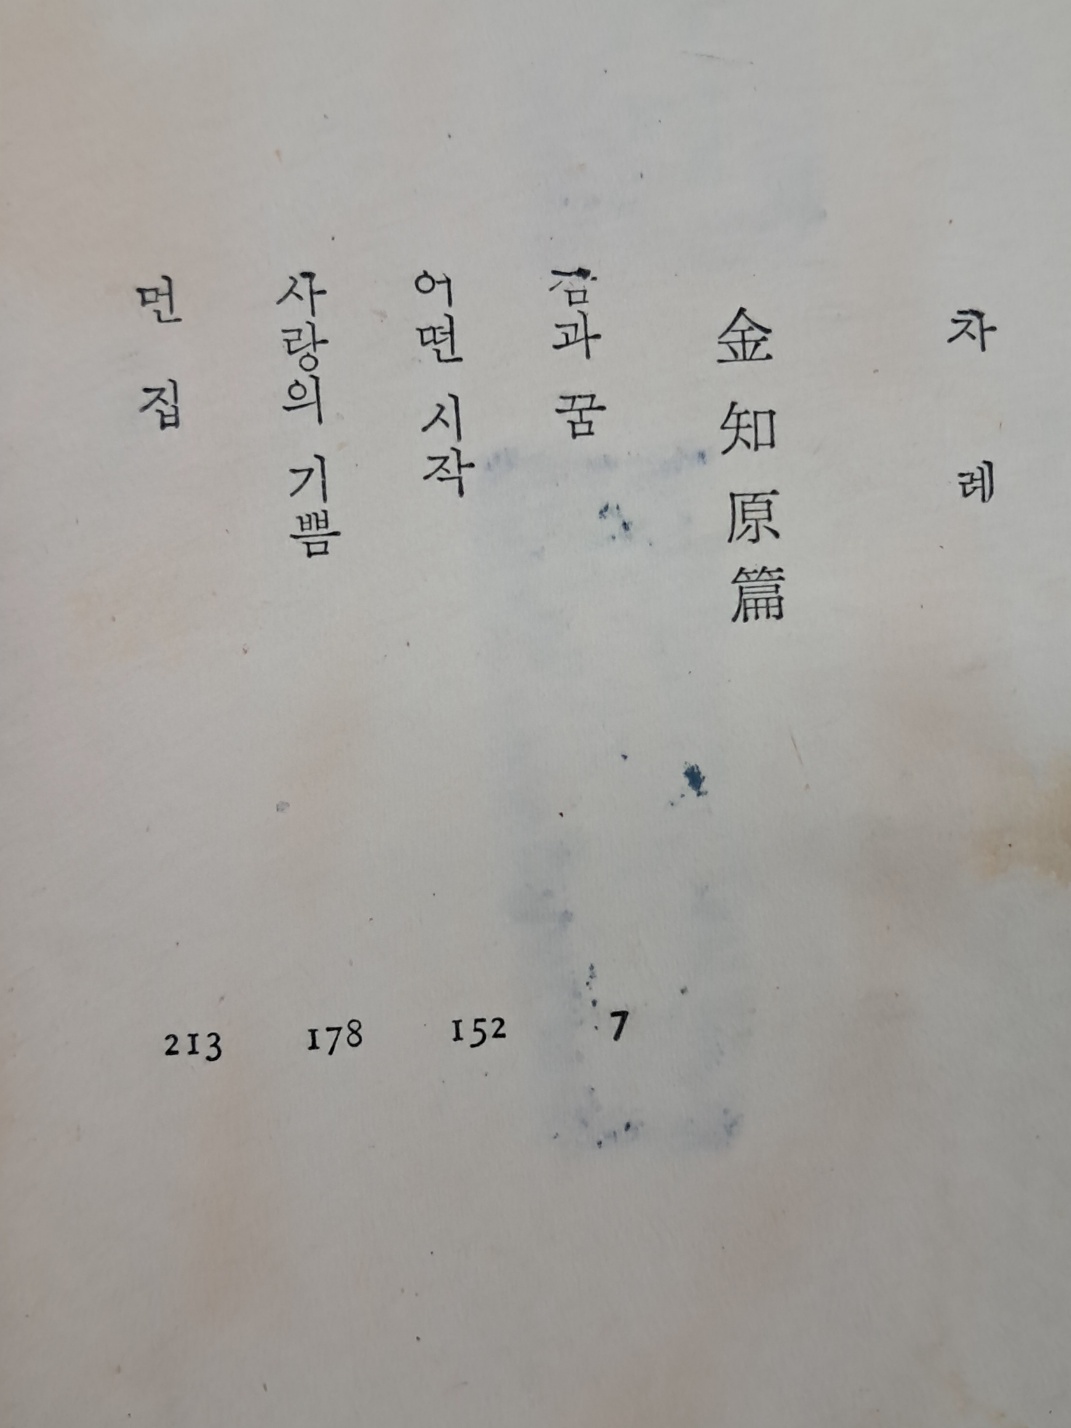 차 례
金知原篇
잠과 꿈 7
어떤 시작 152
사랑의 기쁨 178
먼 집 213